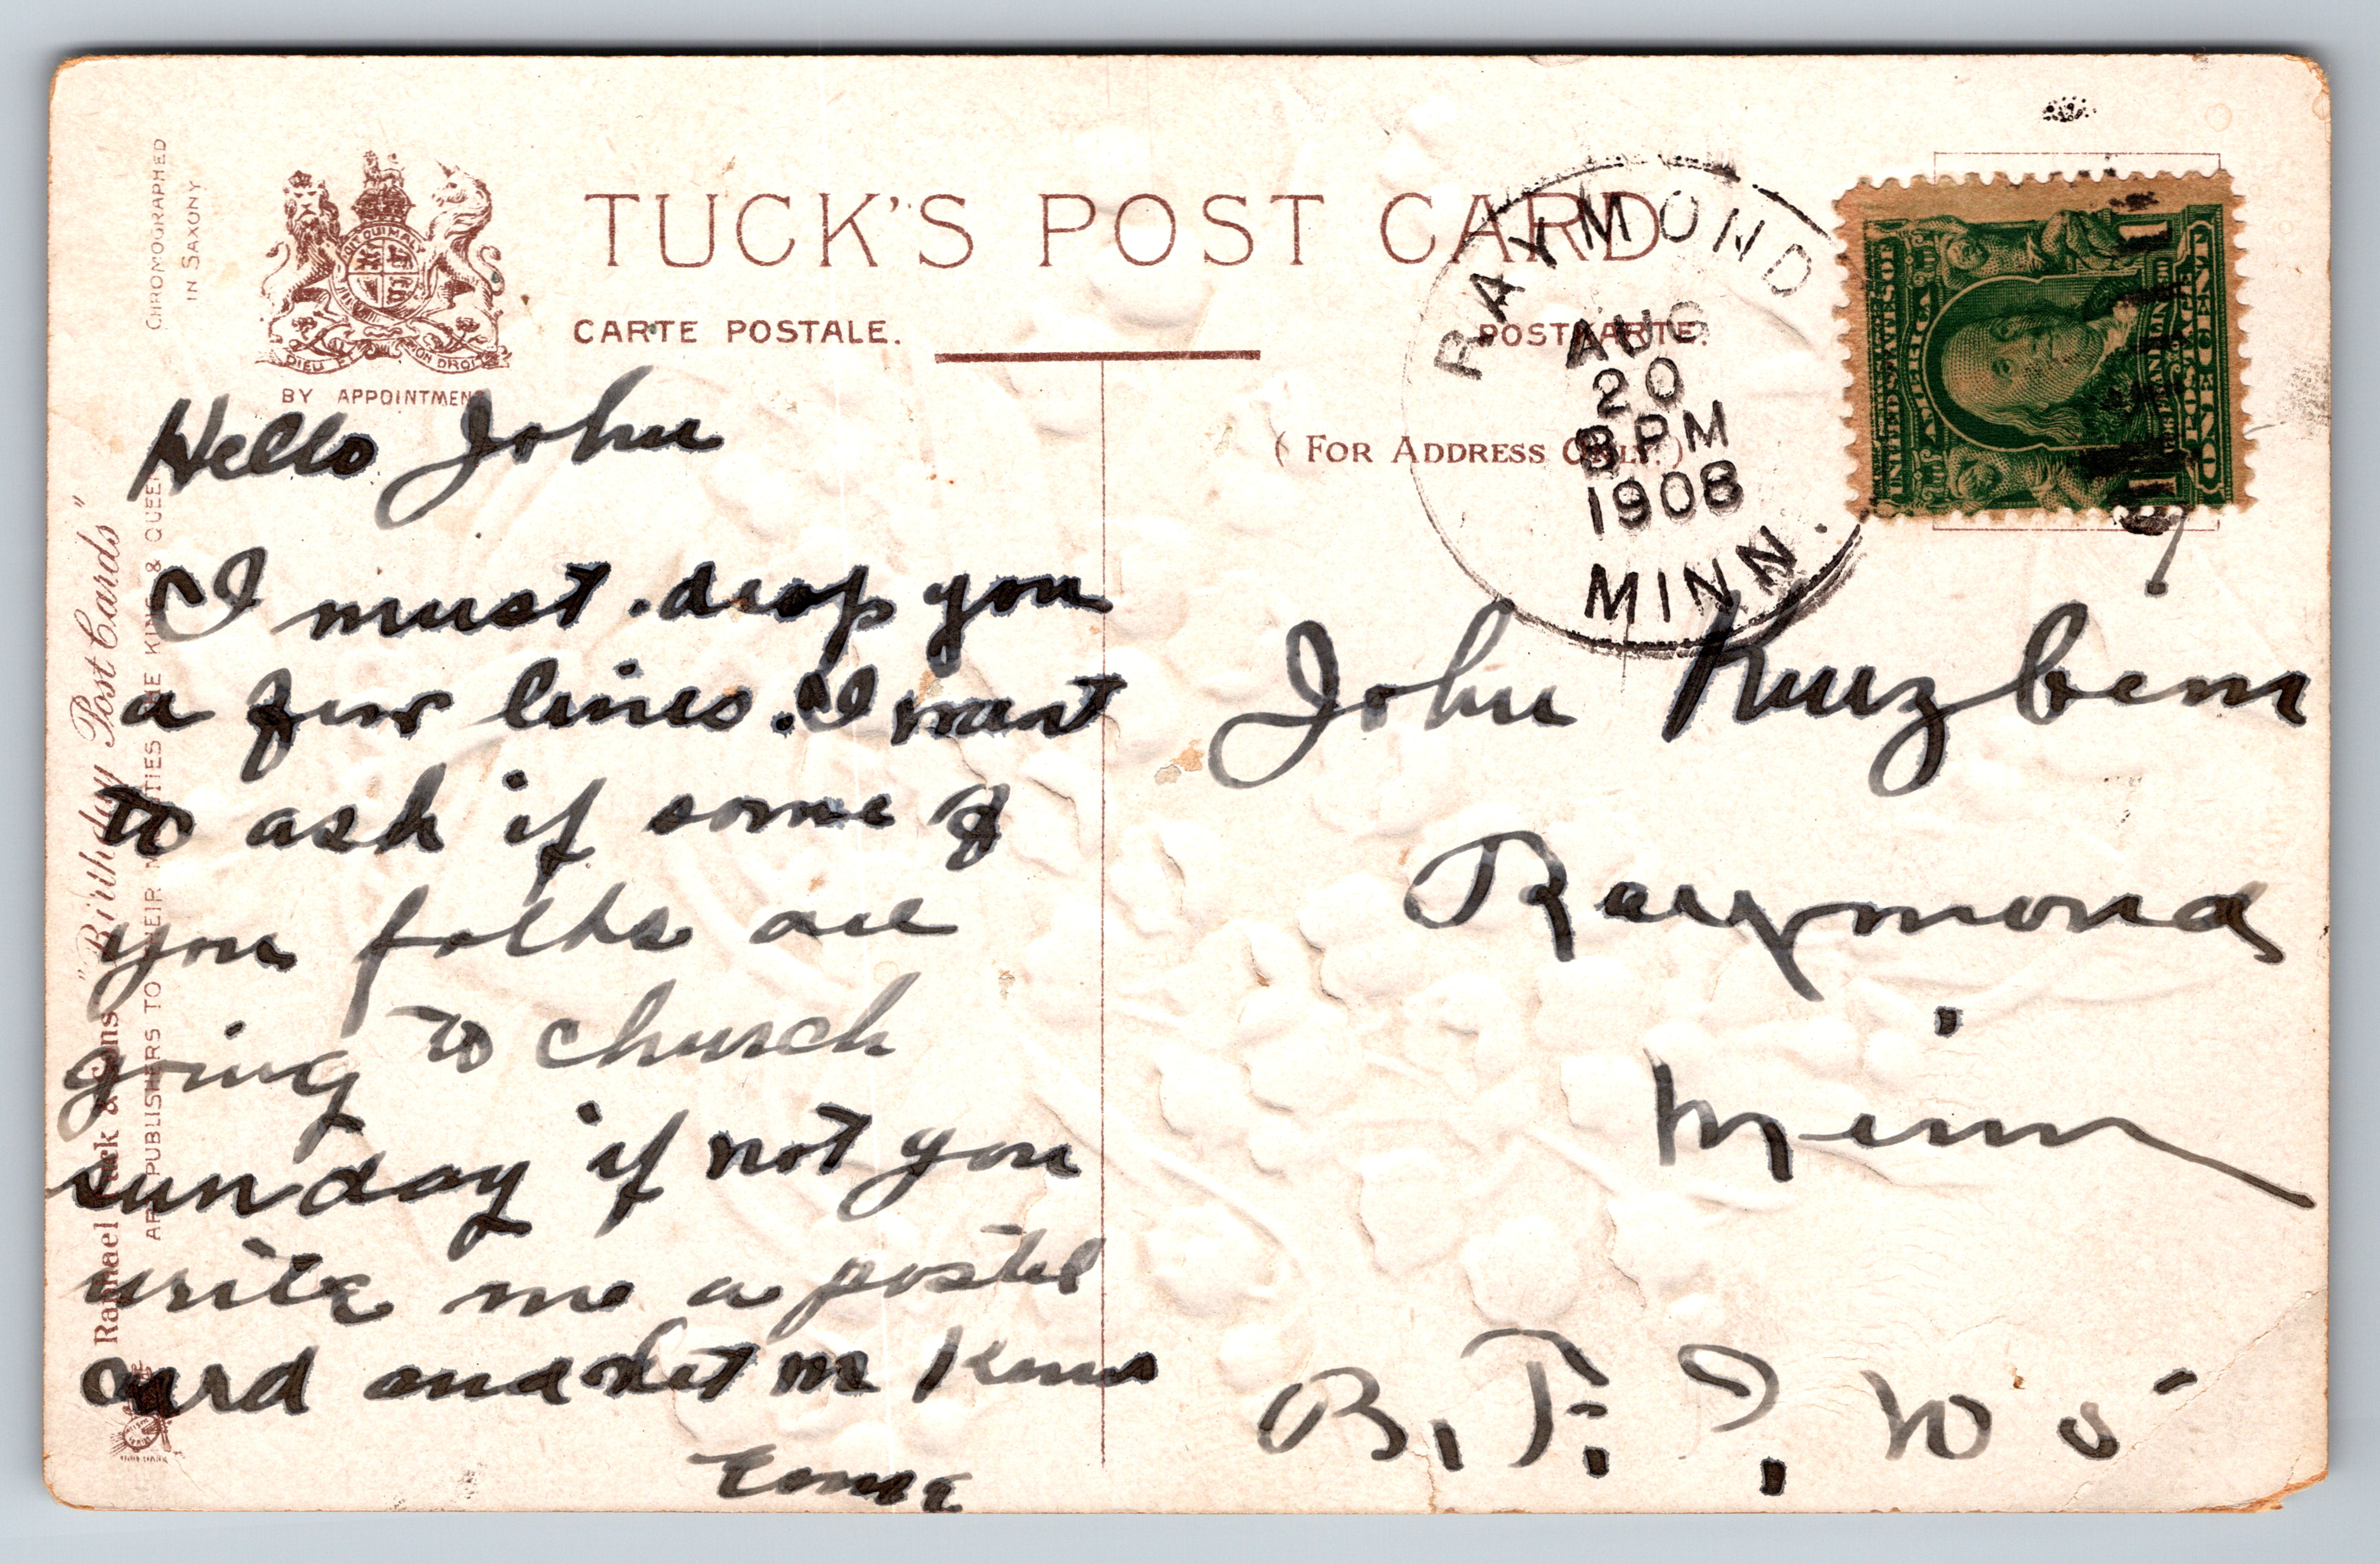 CHROMOGRAPHED
IN SAXONY
DIEU ET MON DROIT
BY APPOINTMENT
TUCK'S POST CARD
CARTE POSTALE.
POSTKARTE.
(FOR ADDRESS ONLY.)
RAYMOND
AUG
20
8 PM
1908
MINN.
UNITED STATES OF
AMERICA
FRANKLIN
POSTAGE
ONE CENT
1
1
Raphael Tuck & Sons "Birthday Post Cards"
ART PUBLISHERS TO THEIR MAJESTIES THE KING & QUEEN
Hello John
I must drop you
a few lines. I want
to ask if some of
you folks are
going to church
sunday if not you
write me a postel
card and let me know
John
Raymond
Minn